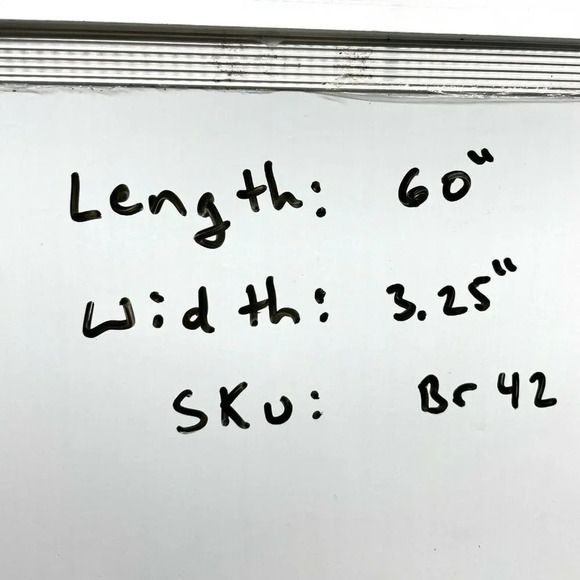 Length: 60"
Width: 3.25"
SKU: Br42